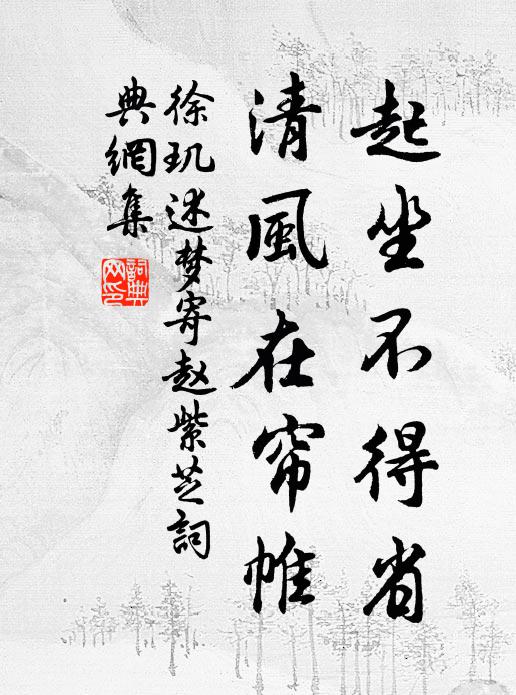 起坐不得省
清風在帘帷
徐玑述梦寄赵紫芝詞
典網集
詞典
网印